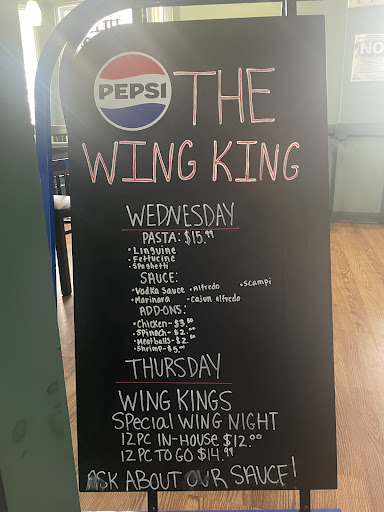 PEPSI
THE
WING KING
WEDNESDAY
PASTA: $15.99
• Linguine
• Fettucine
• Spaghetti
SAUCE:
• Vodka Sauce • Alfredo • Scampi
• Marinara • Cajun Alfredo
ADD-ONS:
• Chicken - $3.00
• Spinach - $2.00
• Meatballs - $2.00
• Shrimp - $5.00
THURSDAY
WING KINGS
Special WING NIGHT
12PC IN-HOUSE $12.00
12PC TO GO $14.99
ASK ABOUT OUR SAUCE!
NO